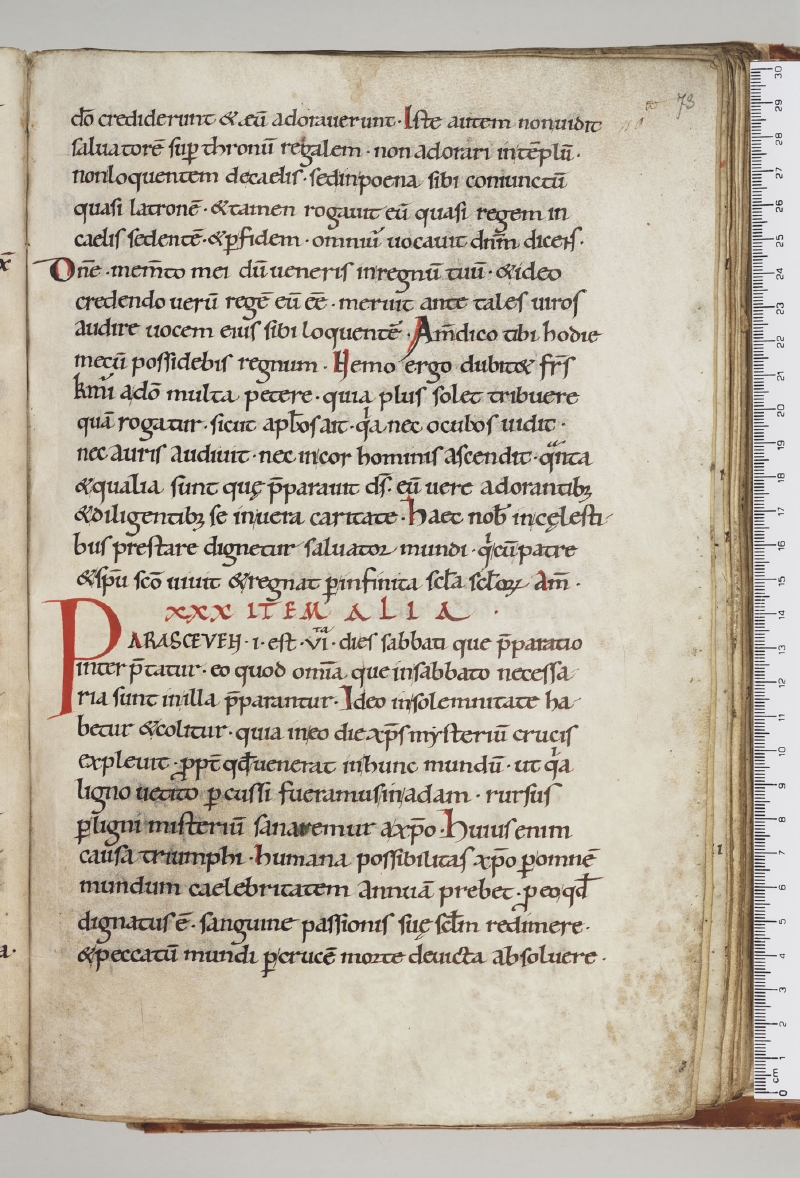 73
dō crediderunt & eū adorauerunt · Iste autem non uidit
saluatorē sup thronū regalem · non adorari intēplū ·
non loquentem decaelis · sed inpoena sibi coniunctū
quasi latronē · & tamen rogauit eū quasi regem in
caelis sedentē · & pfidem · omniū uocauit dnm̄ dicens ·
Dn̄e · mem̄to mei dū ueneris inregnū tuū · & ideo
credendo uerū regē eū eē · meruit ante tales uiros
audire uocem eius sibi loquentē · Am̄ dico tibi hodie
mecū possidebis regnum · Nemo ergo dubit& frs̄
kmi adō multa petere · quia plus solet tribuere
quā rogatur · sicut apłos ait · qa nec oculos uidit ·
nec auris audiuit · nec incor hominis ascendit · qnta
& qualia sunt quę p̄parauit ds̄ · eū uere adorantibꝫ
& diligentibꝫ se inuera caritate · Haec nob̄ incęlesti
bus prestare dignetur saluator mundi · qi cū patre
& sp̄u scō uiuit & regnat ꝑ infinita scła scłoꝝ Am̄ ·
XXX ITEM ALIA ·
PARASCEVEN · i · est · VI ta · dies sabbati que p̄paratio
interp̄tatur · eo quod om̄a que insabbato necessa
ria sunt inilla p̄parantur · Ideo insolemnitate ha
betur & colitur · quia ineo die xp̄s mysteriū crucis
expleuit · ppt qđ uenerat inhunc mundū · ut qa
ligno uetito ꝑcussi fueramus inadam · rursus
ꝑ ligni misteriū sanaremur axp̄o · Huius enim
causa triumphi · humana possibilitas xp̄o ꝑ omnē
mundum caelebritatem annuā prebet · ꝑ eo qđ
dignatus ē · sanguine passionis suę scłm redimere ·
& peccatū mundi ꝑ crucē morte deuicta absoluere ·